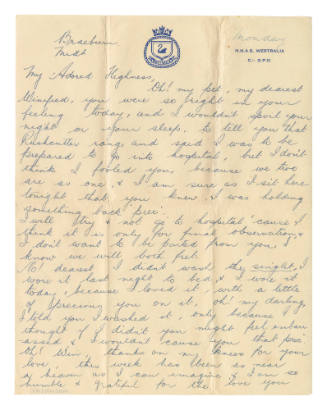 Monday
H.M.A.S. WESTRALIA
C/- G.P.O.
Braeburn
My Adored Highness,
Oh! my pet, my dearest
Winifred, you were so right in your
feeling today, and I wouldn't spoil your
night or your sleep, to tell you that
Rushcutter rang, and said I was to be
prepared to go into hospital, but I don't
think I fooled you, because we two
are as one, & I am sure as I sit here
tonight that you knew I was holding
something back
I will try & not go to hospital 'cause I
think it is only for final observation, &
I don't want to be parted from you, I
know we will both fret.
No! dearest I didn't want the singlet, I
wore it last night to bed, & I wore it
today, because I loved it, with a little
of precious you on it, oh! my darling,
I told you I washed it, only because I
thought if I didn't you might feel embarr-
assed & I wouldn't cause you that
Oh! Win, thanks on my knees for your
love, this week has been as near
a heaven as I can imagine & I am so
humble & grateful for the love you